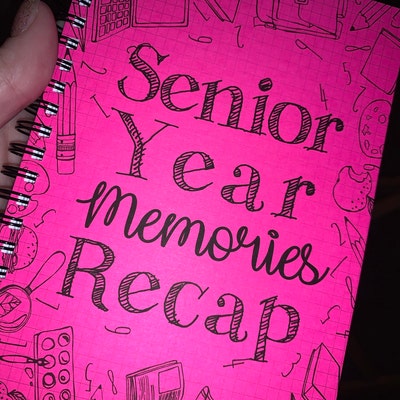 Senior
Year
Memories
Recap